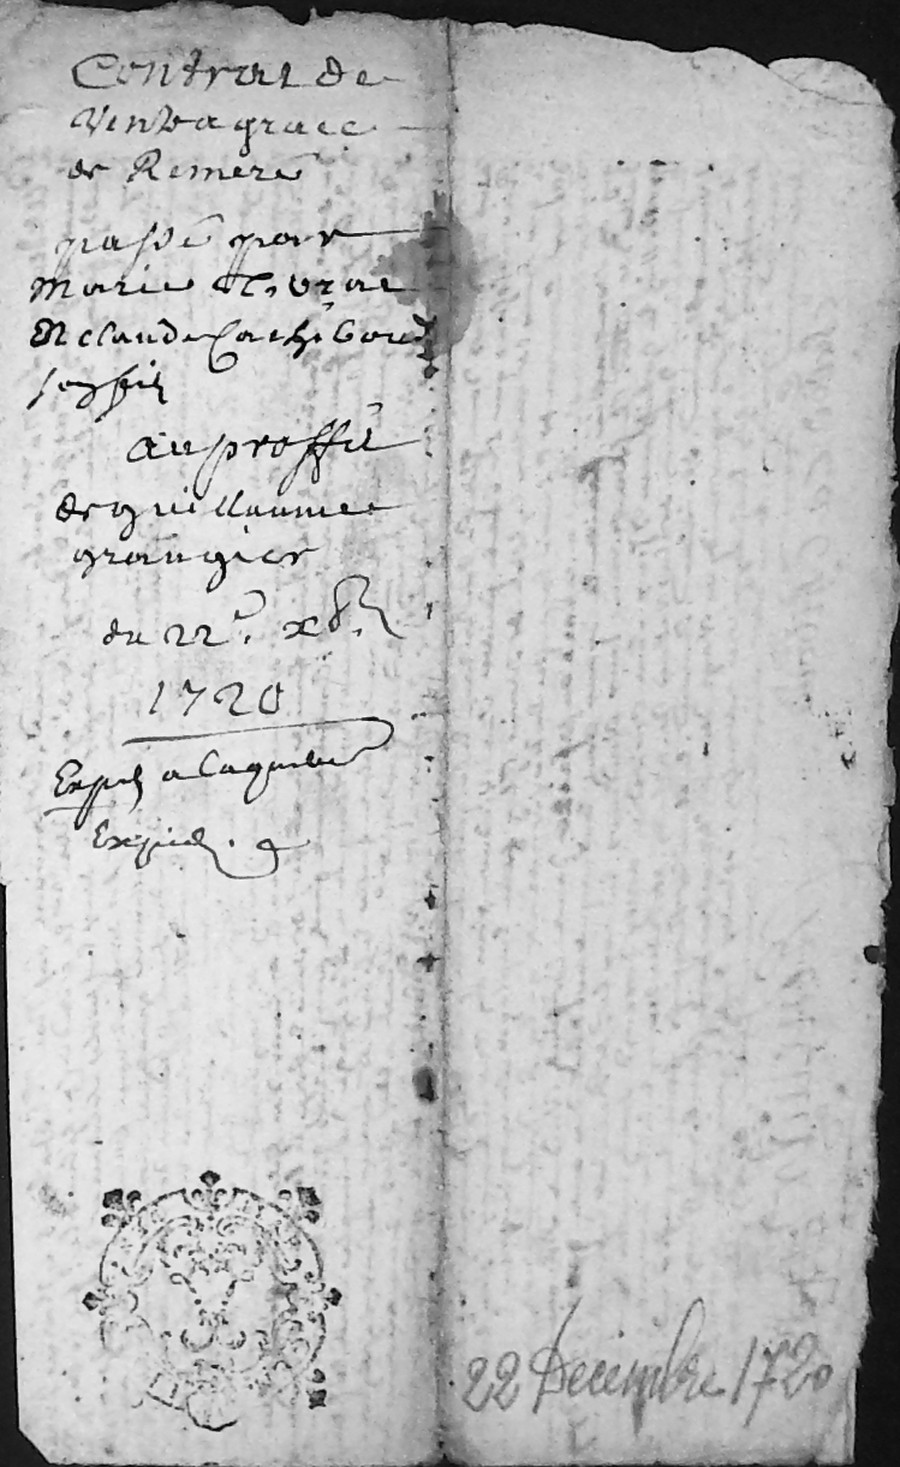 Contrat de
Vente a grace
de Remere
passé par
Marie
Et claude
son fils
au proffit
de guillaume
grangier
du 22e. xbre.
1720
Expié a
Expié.
22 Decembre 1720